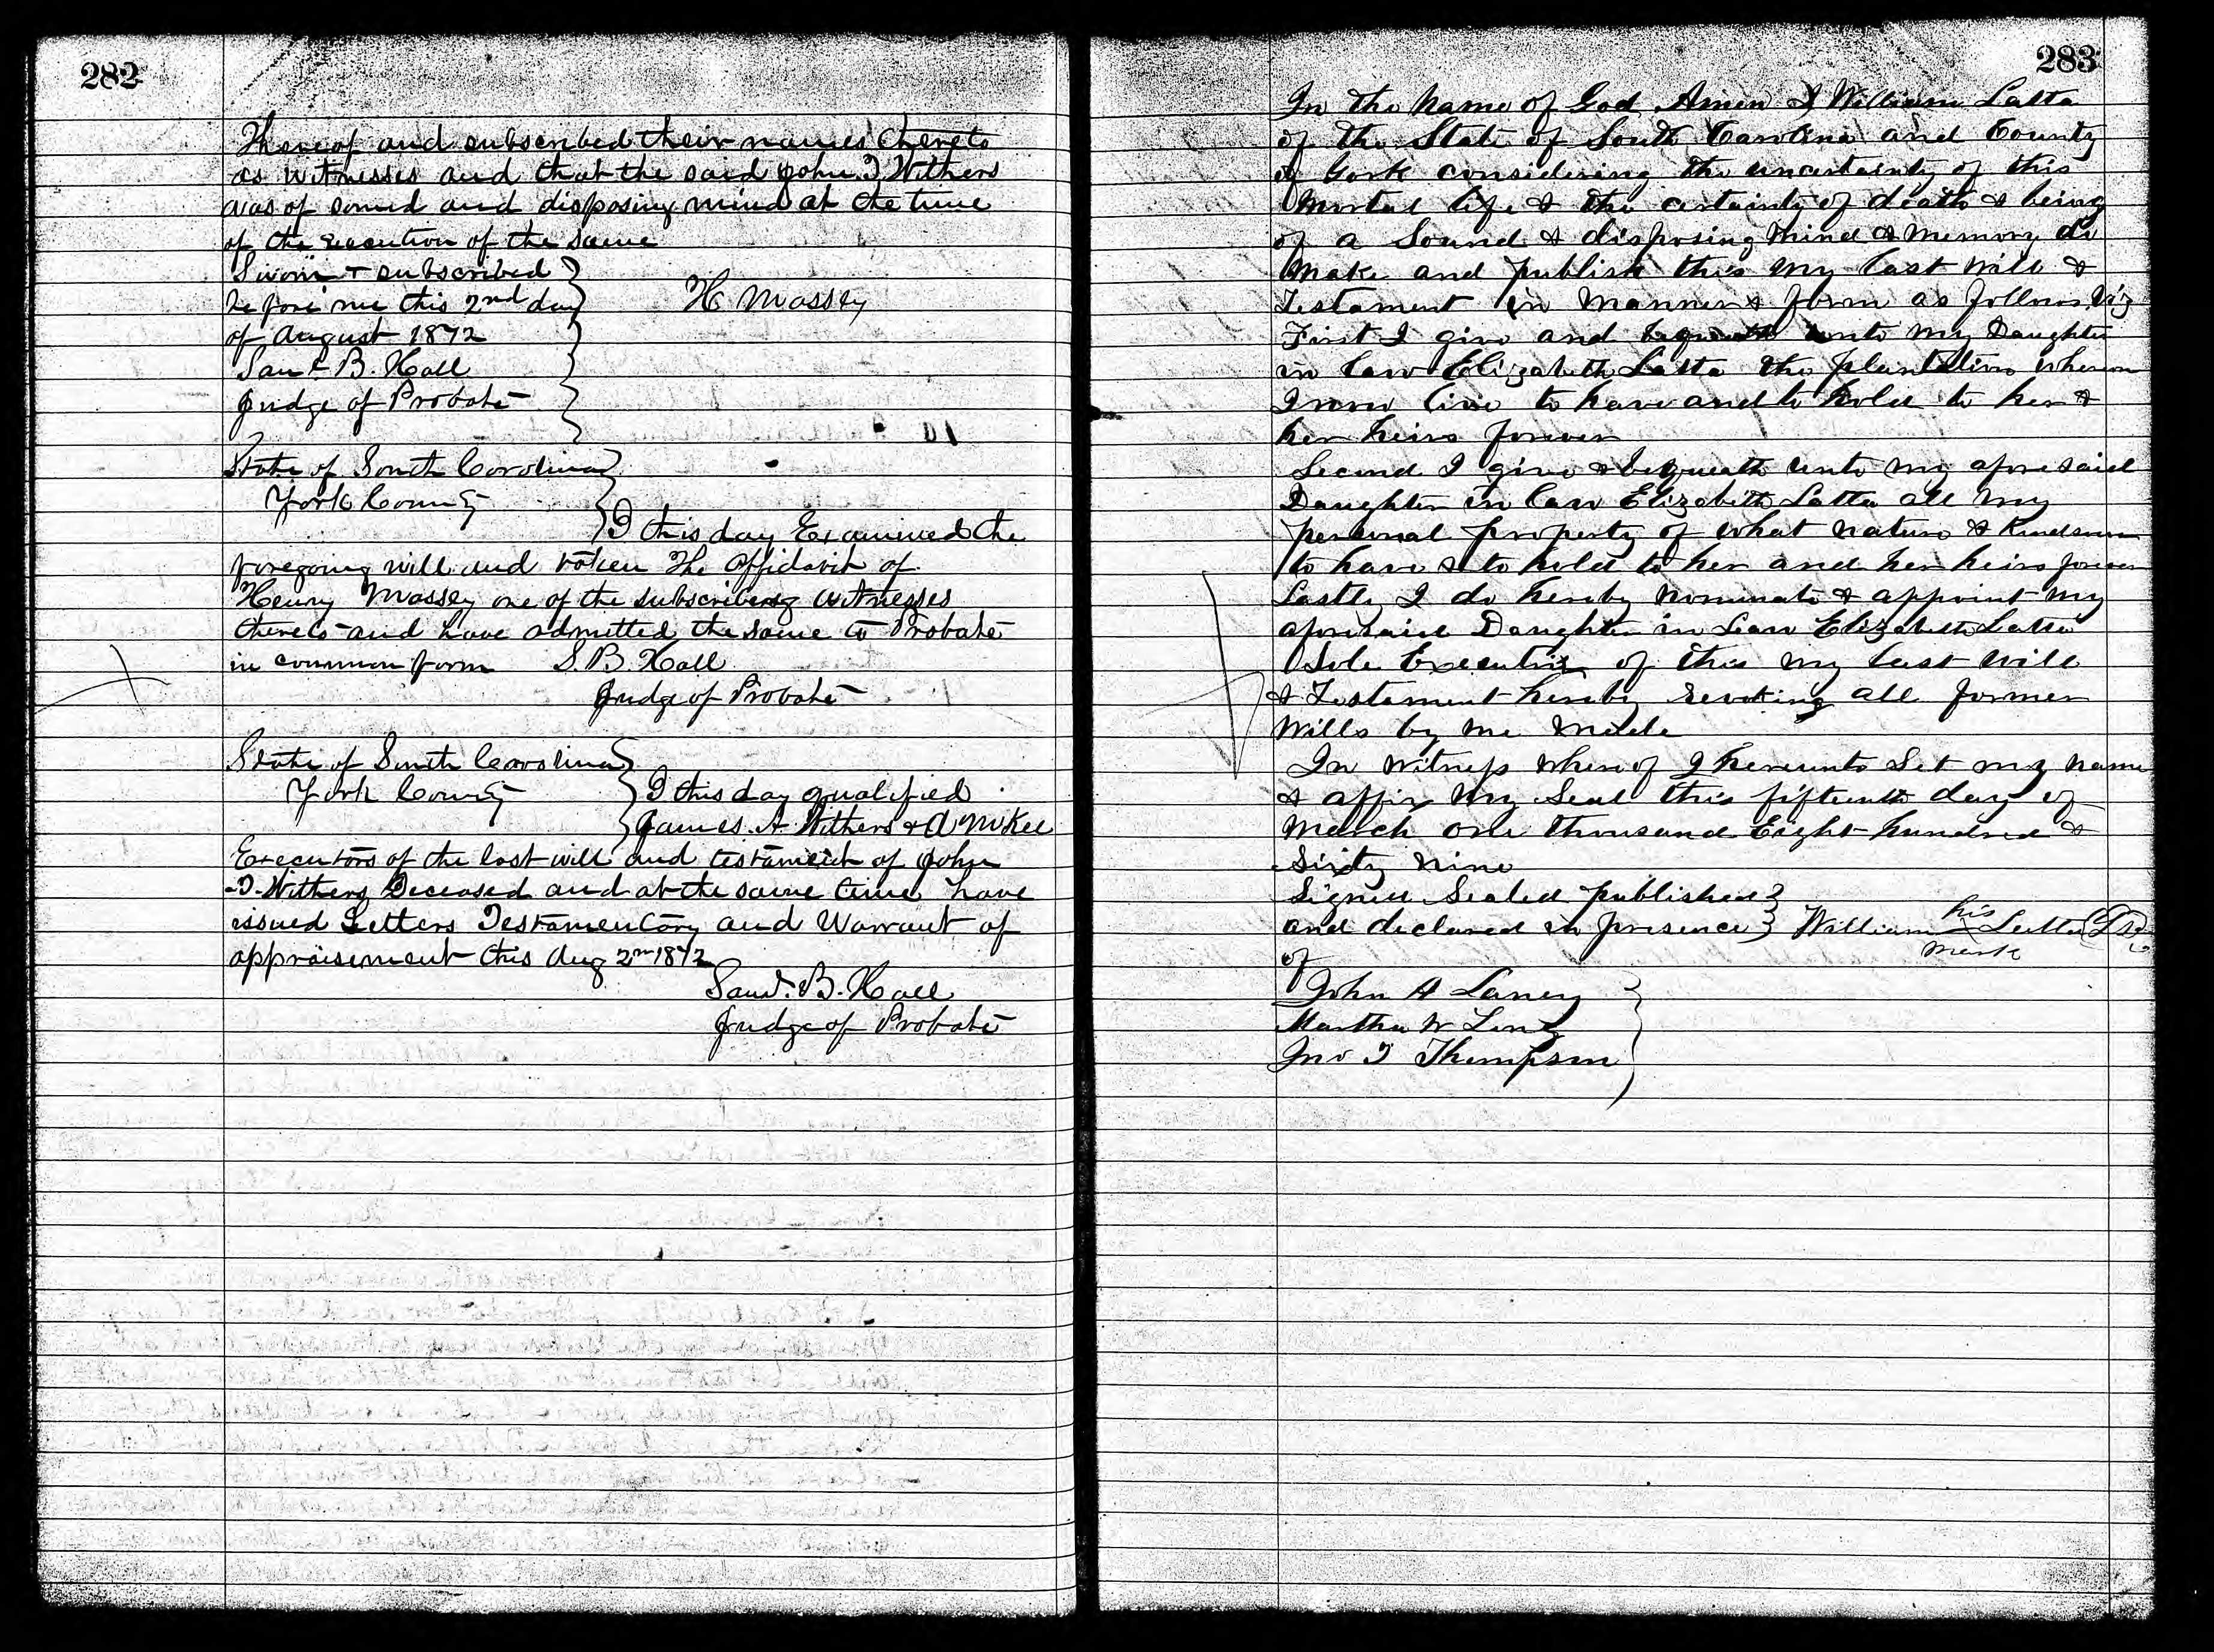 282
Thereof and subscribed their names thereto
as witnesses and that the said John T. Withers
was of sound and disposing mind at the time
of the execution of the same
Sworn + subscribed
before me this 2nd day
of August 1872
H Massey
Saml B. Hall
Judge of Probate
State of South Carolina
York County
I this day Examined the
foregoing will and taken The affidavit of
Henry Massey one of the subscribing witnesses
thereto and have admitted the same to Probate
in common form S. B. Hall
Judge of Probate
State of South Carolina
York County
I this day qualified
James. A. Withers & A McKee
Executors of the last will and testament of John
T. Withers Deceased and at the same time have
issued Letters Testamentary and Warrant of
appraisement this Aug 2nd 1872
Saml. B. Hall
Judge of Probate
283
In the Name of God Amen I William Latta
of the State of South Carolina and County
of York considering the uncertainty of this
Mortal life & the certainty of death & being
of a Sound & disposing Mind & Memory do
Make and publish this my last Will &
Testament in Manner & form as follows Viz
First I give and bequeath unto my Daughter
in law Elizabeth Latta the plantation whereon
I now live to have and to hold to her &
her heirs forever
Second I give & bequeath unto my aforesaid
Daughter in law Elizabeth Latta all my
personal property of what nature & Kindsoever
to have & to hold to her and her heirs forever
Lastly I do hereby nominate & appoint my
aforesaid Daughter in Law Elizabeth Latta
Sole Executrix of this my last will
& Testament hereby revoking all former
Wills by me made
In Witness whereof I hereunto Set my name
& affix my Seal this fifteenth day of
March one thousand Eight hundred &
Sixty nine
Signed Sealed published
and declared in presence William his mark Latta
of
John A Laney
Martha W
Jno T Thompson